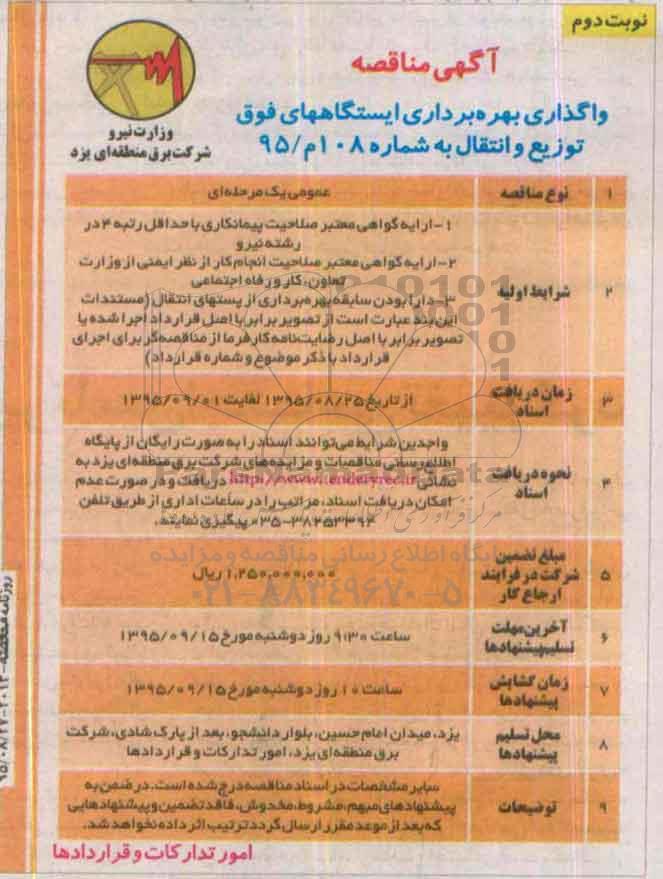 نوبت دوم
آگهی مناقصه
واگذاری بهره‌برداری ایستگاههای فوق
توزیع و انتقال به شماره ۱۰۸م/۹۵
وزارت نیرو
شرکت برق منطقه‌ای یزد
۱ نوع مناقصه عمومی یک مرحله‌ای
۲ شرایط اولیه
۱-ارایه گواهی معتبر صلاحیت پیمانکاری با حداقل رتبه ۴ در
رشته نیرو
۲-ارایه گواهی معتبر صلاحیت انجام کار از نظر ایمنی از وزارت
تعاون، کار و رفاه اجتماعی
۳-دارا بودن سابقه بهره‌برداری از پستهای انتقال (مستندات
این بند عبارت است از تصویر برابر با اصل قرارداد اجرا شده یا
تصویر برابر با اصل رضایت‌نامه کارفرما از مناقصه‌گر برای اجرای
قرارداد با ذکر موضوع و شماره قرارداد)
۳ زمان دریافت اسناد
از تاریخ ۱۳۹۵/۰۸/۲۵ لغایت ۱۳۹۵/۰۹/۰۱
۴ نحوه دریافت اسناد
واجدین شرایط می‌توانند اسناد را به صورت رایگان از پایگاه
اطلاع رسانی مناقصات و مزایده‌های شرکت برق منطقه‌ای یزد به
نشانی http://www.tender.yrec.ir دریافت و در صورت عدم
امکان دریافت اسناد، مراتب را در ساعات اداری از طریق تلفن
۰۳۵-۳۸۲۵۲۳۹۴ پیگیری نمایند.
۵ مبلغ تضمین شرکت در فرایند ارجاع کار
۱,۲۵۰,۰۰۰,۰۰۰ ریال
پایگاه اطلاع رسانی مناقصه و مزایده
۰۲۱-۸۸۳۴۹۶۷۰-۵
۶ آخرین مهلت تسلیم پیشنهادها
ساعت ۹:۳۰ روز دوشنبه مورخ ۱۳۹۵/۰۹/۱۵
۷ زمان گشایش پیشنهادها
ساعت ۱۰ روز دوشنبه مورخ ۱۳۹۵/۰۹/۱۵
۸ محل تسلیم پیشنهادها
یزد، میدان امام حسین، بلوار دانشجو، بعد از پارک شادی، شرکت
برق منطقه‌ای یزد، امور تدارکات و قراردادها
۹ توضیحات
سایر مشخصات در اسناد مناقصه درج شده است. در ضمن به
پیشنهادهای مبهم، مشروط، مخدوش، فاقد تضمین و پیشنهادهایی
که بعد از موعد مقرر ارسال گردد ترتیب اثر داده نخواهد شد.
امور تدارکات و قراردادها